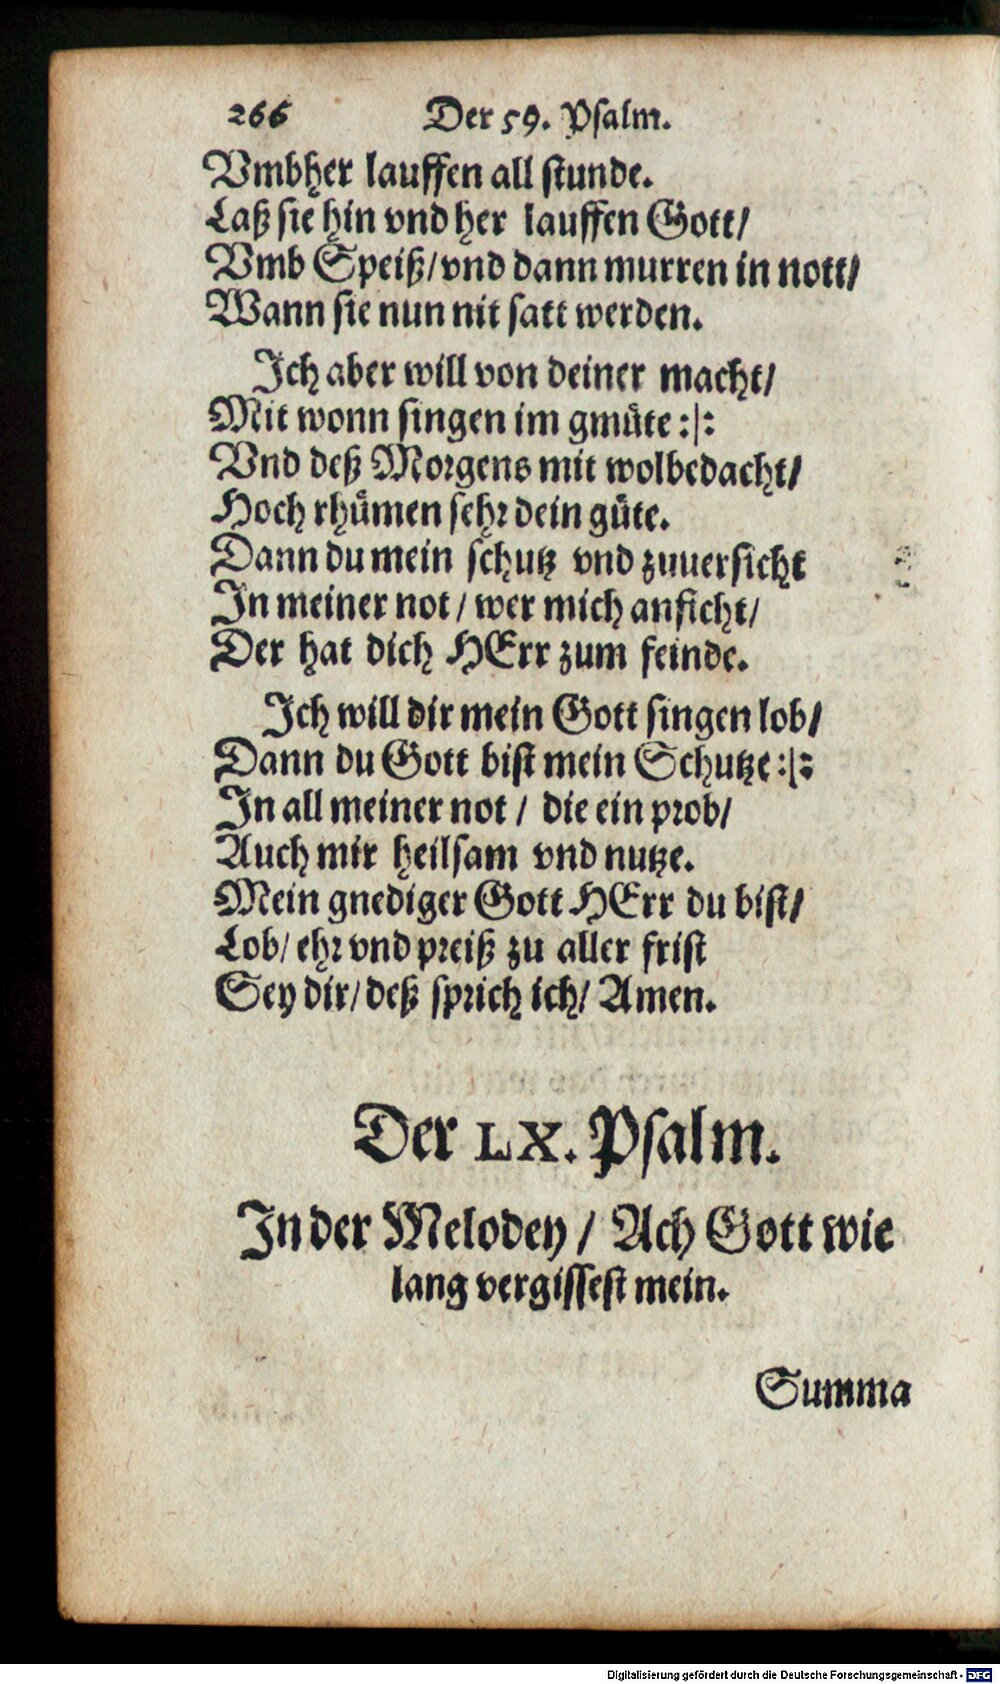 266 Der 59. Psalm.
Vmbher lauffen all stunde.
Laß sie hin vnd her lauffen Gott/
Vmb Speiß/vnd dann murren in nott/
Wann sie nun nit satt werden.
Ich aber will von deiner macht/
Mit wonn singen im gmüte :|:
Vnd deß Morgens mit wolbedacht/
Hoch rhümen sehr dein güte.
Dann du mein schutz vnd zuuersicht
In meiner not / wer mich anficht/
Der hat dich HErr zum feinde.
Ich will dir mein Gott singen lob/
Dann du Gott bist mein Schutze :|:
In all meiner not / die ein prob/
Auch mir heilsam vnd nutze.
Mein gnediger Gott HErr du bist/
Lob/ ehr vnd preiß zu aller frist
Sey dir/ deß sprich ich/ Amen.
Der LX. Psalm.
In der Melodey / Ach Gott wie
lang vergissest mein.
Summa
Digitalisierung gefördert durch die Deutsche Forschungsgemeinschaft - DFG